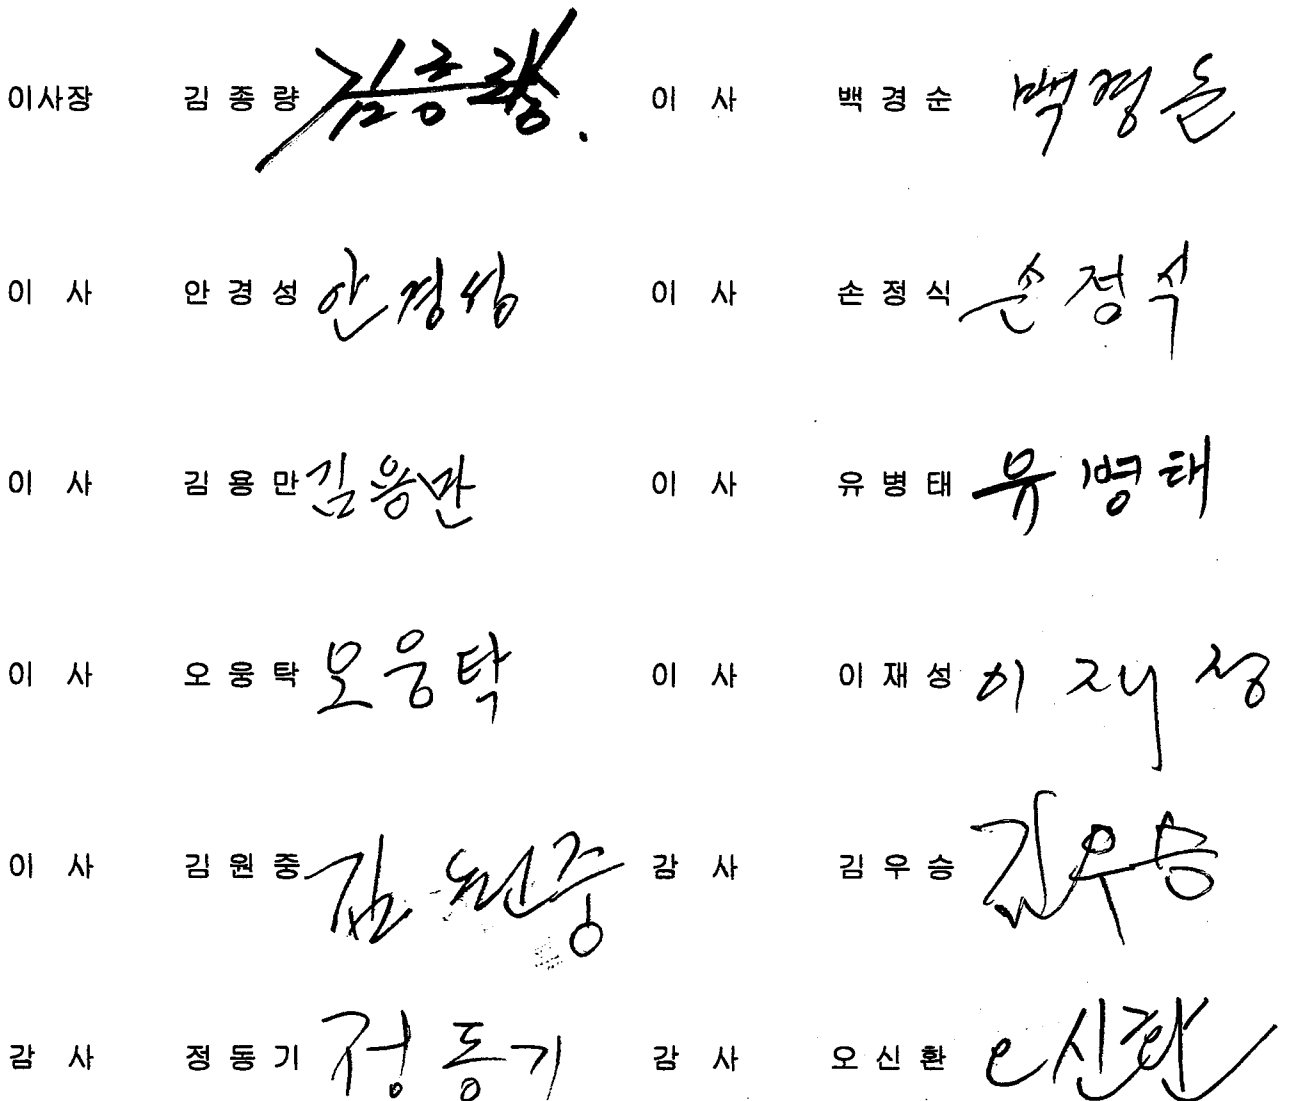 이사장 김 종 량 김종량. 이 사 백 경 순 백경순
이 사 안 경 성 안경성 이 사 손 정 식 손정식
이 사 김 용 만 김용만 이 사 유 병 태 유병태
이 사 오 웅 탁 오웅탁 이 사 이 재 성 이재성
이 사 김 원 중 김원중 감 사 김 우 승 김우승
감 사 정 동 기 정동기 감 사 오 신 환 오신환